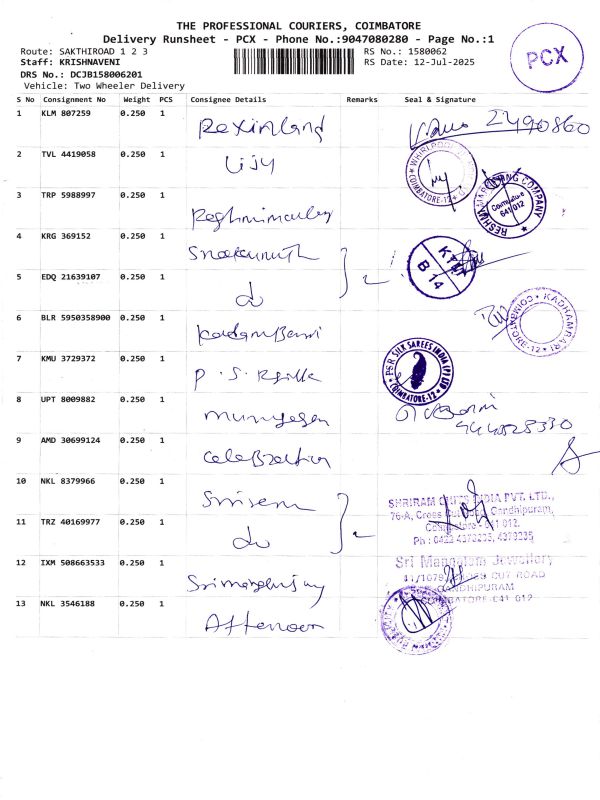 THE PROFESSIONAL COURIERS, COIMBATORE
Delivery Runsheet - PCX - Phone No.:9047080280 - Page No.:1
Route: SAKTHIROAD 1 2 3
Staff: KRISHNAVENI
DRS No.: DCJB158006201
Vehicle: Two Wheeler Delivery
RS No.: 1580062
RS Date: 12-Jul-2025
PCX
S No Consignment No Weight PCS Consignee Details Remarks Seal & Signature
1 KLM 807259 0.250 1 Rexinland
2 TVL 4419058 0.250 1 Ujy
WHIRLPOOL
COIMBATORE-12
3 TRP 5988997 0.250 1
MARKETING COMPANY
Coimbatore
641 012
4 KRG 369152 0.250 1
B 14
5 EDQ 21639107 0.250 1 do
6 BLR 5950358900 0.250 1
COIMBATORE-12
7 KMU 3729372 0.250 1 P.S.R silk
PSR SILK SAREES INDIA (P) LTD
COIMBATORE-12
8 UPT 8009882 0.250 1 murugesan
9 AMD 30699124 0.250 1 Celebration
10 NKL 8379966 0.250 1
SHRIRAM CHITS INDIA PVT. LTD.,
76-A, Cross Cut Road, Gandhipuram,
Coimbatore - 641 012.
Ph : 0422 4378235, 4379235
11 TRZ 40169977 0.250 1 do
12 IXM 508663533 0.250 1
Sri Mangalam Jewellery
CUT ROAD
GANDHIPURAM
COIMBATORE-641 012
13 NKL 3546188 0.250 1 Afternoon